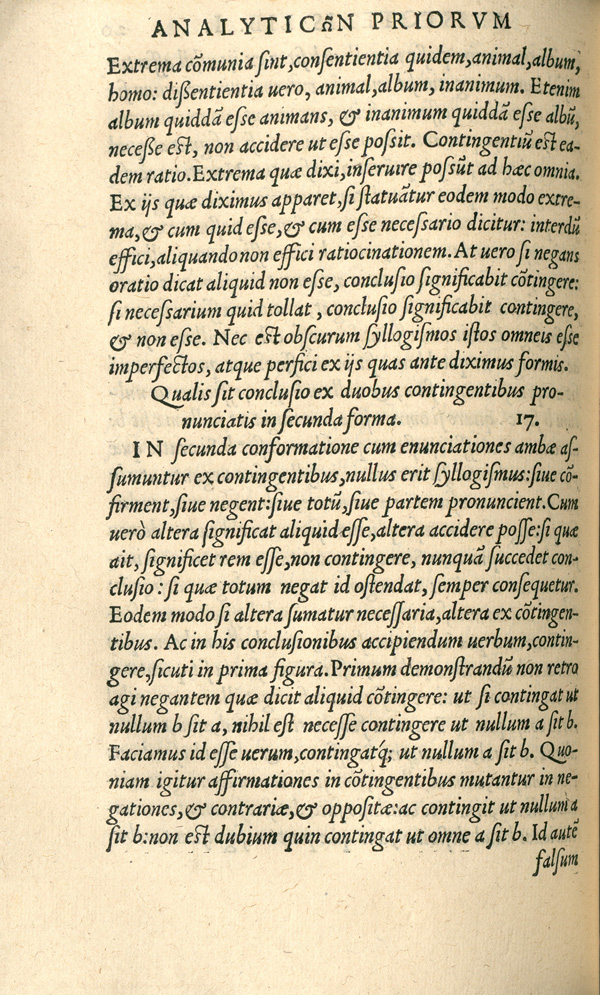 ANALYTICωN PRIORVM
Extrema cõmunia ſint,conſentientia quidem,animal,album,
homo: dißentientia uero, animal,album, inanimum. Etenim
album quiddã eſſe animans, & inanimum quiddã eſſe albũ,
neceße est, non accidere ut eſſe poſsit. Contingentiũ est ea-
dem ratio.Extrema quæ dixi,inſeruire poſſũt ad hæc omnia.
Ex ijs quæ diximus apparet,ſi ſtatuãtur eodem modo extre-
ma,& cum quid eſſe,& cum eſſe neceſſario dicitur: interdũ
effici,aliquando non effici ratiocinationem.At uero ſi negans
oratio dicat aliquid non eſſe, concluſio ſignificabit cõtingere:
ſi neceſſarium quid tollat , concluſio ſignificabit contingere,
& non eſſe. Nec est obſcurum ſyllogiſmos iſtos omneis eſſe
imperfectos, atque perfici ex ijs quas ante diximus formis.
Qualis ſit concluſio ex duobus contingentibus pro-
nunciatis in ſecunda forma. 17.
IN ſecunda conformatione cum enunciationes ambæ aſ-
ſumuntur ex contingentibus,nullus erit ſyllogiſmus:ſiue cõ-
firment,ſiue negent:ſiue totũ,ſiue partem pronuncient.Cum
uerò altera ſignificat aliquid eſſe,altera accidere poſſe:ſi quæ
ait, ſignificet rem eſſe,non contingere, nunquã ſuccedet con-
cluſio : ſi quæ totum negat id oſtendat, ſemper conſequetur.
Eodem modo ſi altera ſumatur neceſſaria,altera ex cõtingen-
tibus. Ac in his concluſionibus accipiendum uerbum,contin-
gere,ſicuti in prima figura.Primum demonſtrandũ non retro
agi negantem quæ dicit aliquid cõtingere: ut ſi contingat ut
nullum b ſit a, nihil est neceſſe contingere ut nullum a ſit b.
Faciamus id eſſe uerum,contingatq́; ut nullum a ſit b. Quo-
niam igitur affirmationes in cõtingentibus mutantur in ne-
gationes,& contrariæ,& oppoſitæ:ac contingit ut nullum a
ſit b:non est dubium quin contingat ut omne a ſit b. Id autẽ
falſum